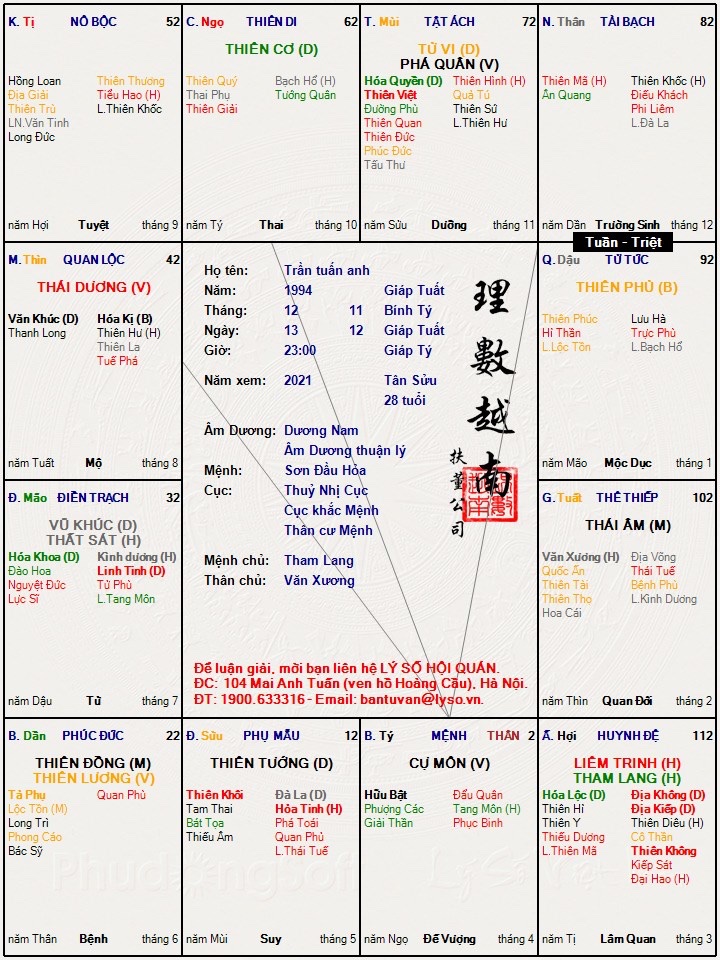 K. Tị NÔ BỘC 52
Hồng Loan Thiên Thương
Địa Giải Tiểu Hao (H)
Thiên Trù L.Thiên Khốc
LN.Văn Tinh
Long Đức
năm Hợi Tuyệt tháng 9
C. Ngọ THIÊN DI 62
THIÊN CƠ (D)
Thiên Quý Bạch Hổ (H)
Thai Phụ Tướng Quân
Thiên Giải
năm Tý Thai tháng 10
T. Mùi TẬT ÁCH 72
TỬ VI (D)
PHÁ QUÂN (V)
Hóa Quyền (D) Thiên Hình (H)
Thiên Việt Quả Tú
Đường Phù Thiên Sứ
Thiên Quan L.Thiên Hư
Thiên Đức
Phúc Đức
Tấu Thư
năm Sửu Dưỡng tháng 11
N. Thân TÀI BẠCH 82
Thiên Mã (H) Thiên Khốc (H)
Ân Quang Điếu Khách
Phi Liêm
L.Đà La
năm Dần Trường Sinh tháng 12
Tuần - Triệt
M. Thìn QUAN LỘC 42
THÁI DƯƠNG (V)
Văn Khúc (D) Hóa Kị (B)
Thanh Long Thiên Hư (H)
Thiên La
Tuế Phá
năm Tuất Mộ tháng 8
Họ tên: Trần tuấn anh
Năm: 1994 Giáp Tuất
Tháng: 12 11 Bính Tý
Ngày: 13 12 Giáp Tuất
Giờ: 23:00 Giáp Tý
Năm xem: 2021 Tân Sửu
28 tuổi
Âm Dương: Dương Nam
Âm Dương thuận lý
Mệnh: Sơn Đầu Hỏa
Cục: Thuỷ Nhị Cục
Cục khắc Mệnh
Thân cư Mệnh
Mệnh chủ: Tham Lang
Thân chủ: Văn Xương
理數越南
扶董公司
Để luận giải, mời bạn liên hệ LÝ SỐ HỘI QUÁN.
ĐC: 104 Mai Anh Tuấn (ven hồ Hoàng Cầu), Hà Nội.
ĐT: 1900.633316 - Email: bantuvan@lyso.vn.
Q. Dậu TỬ TỨC 92
THIÊN PHỦ (B)
Thiên Phúc Lưu Hà
Hỉ Thần Trực Phù
L.Lộc Tồn L.Bạch Hổ
năm Mão Mộc Dục tháng 1
Đ. Mão ĐIỀN TRẠCH 32
VŨ KHÚC (D)
THẤT SÁT (H)
Hóa Khoa (D) Kình dương (H)
Đào Hoa Linh Tinh (D)
Nguyệt Đức Tử Phù
Lực Sĩ L.Tang Môn
năm Dậu Tử tháng 7
G. Tuất THÊ THIẾP 102
THÁI ÂM (M)
Văn Xương (H) Địa Võng
Quốc Ấn Thái Tuế
Thiên Tài Bệnh Phù
Thiên Thọ L.Kình Dương
Hoa Cái
năm Thìn Quan Đới tháng 2
B. Dần PHÚC ĐỨC 22
THIÊN ĐỒNG (M)
THIÊN LƯƠNG (V)
Tả Phụ Quan Phủ
Lộc Tồn (M)
Long Trì
Phong Cáo
Bác Sỹ
năm Thân Bệnh tháng 6
Đ. Sửu PHỤ MẪU 12
THIÊN TƯỚNG (D)
Thiên Khôi Đà La (D)
Tam Thai Hỏa Tinh (H)
Bát Tọa Phá Toái
Thiếu Âm Quan Phủ
L.Thái Tuế
năm Mùi Suy tháng 5
B. Tý MỆNH THÂN 2
CỰ MÔN (V)
Hữu Bật Đẩu Quân
Phượng Các Tang Môn (H)
Giải Thần Phục Binh
năm Ngọ Đế Vượng tháng 4
Ấ. Hợi HUYNH ĐỆ 112
LIÊM TRINH (H)
THAM LANG (H)
Hóa Lộc (D) Địa Không (D)
Thiên Hỉ Địa Kiếp (D)
Thiên Y Thiên Diêu (H)
Thiếu Dương Cô Thần
L.Thiên Mã Thiên Không
Kiếp Sát
Đại Hao (H)
năm Tị Lâm Quan tháng 3